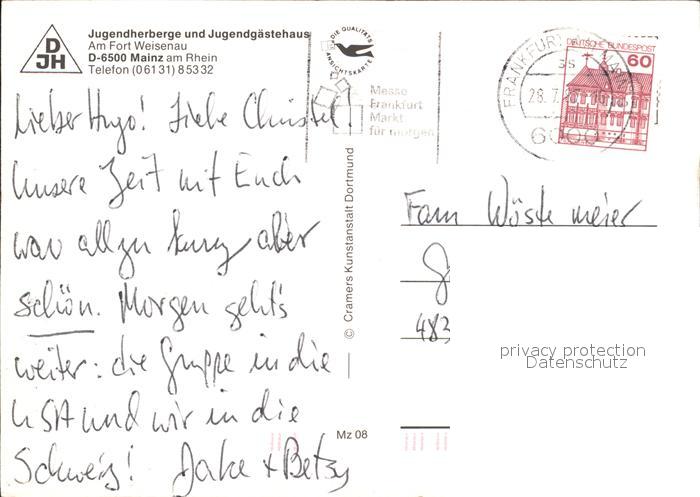 DJH
Jugendherberge und Jugendgästehaus
Am Fort Weisenau
D-6500 Mainz am Rhein
Telefon (06131) 85332
DIE QUALITÄTS ANSICHTSKARTE
Messe
Frankfurt
Markt
für morgen
FRANKFURT
28.7.
6000
DEUTSCHE BUNDESPOST
60
Lieber Hugo! Liebe Christel!
Unsere Zeit mit Euch
war allzu kurz aber
schön. Morgen geht's
weiter: die Gruppe in die
USA und wir in die
Schweiz! Jake + Betsy
© Cramers Kunstanstalt Dortmund
Mz 08
Fam Wöstemeier
482
privacy protection
Datenschutz